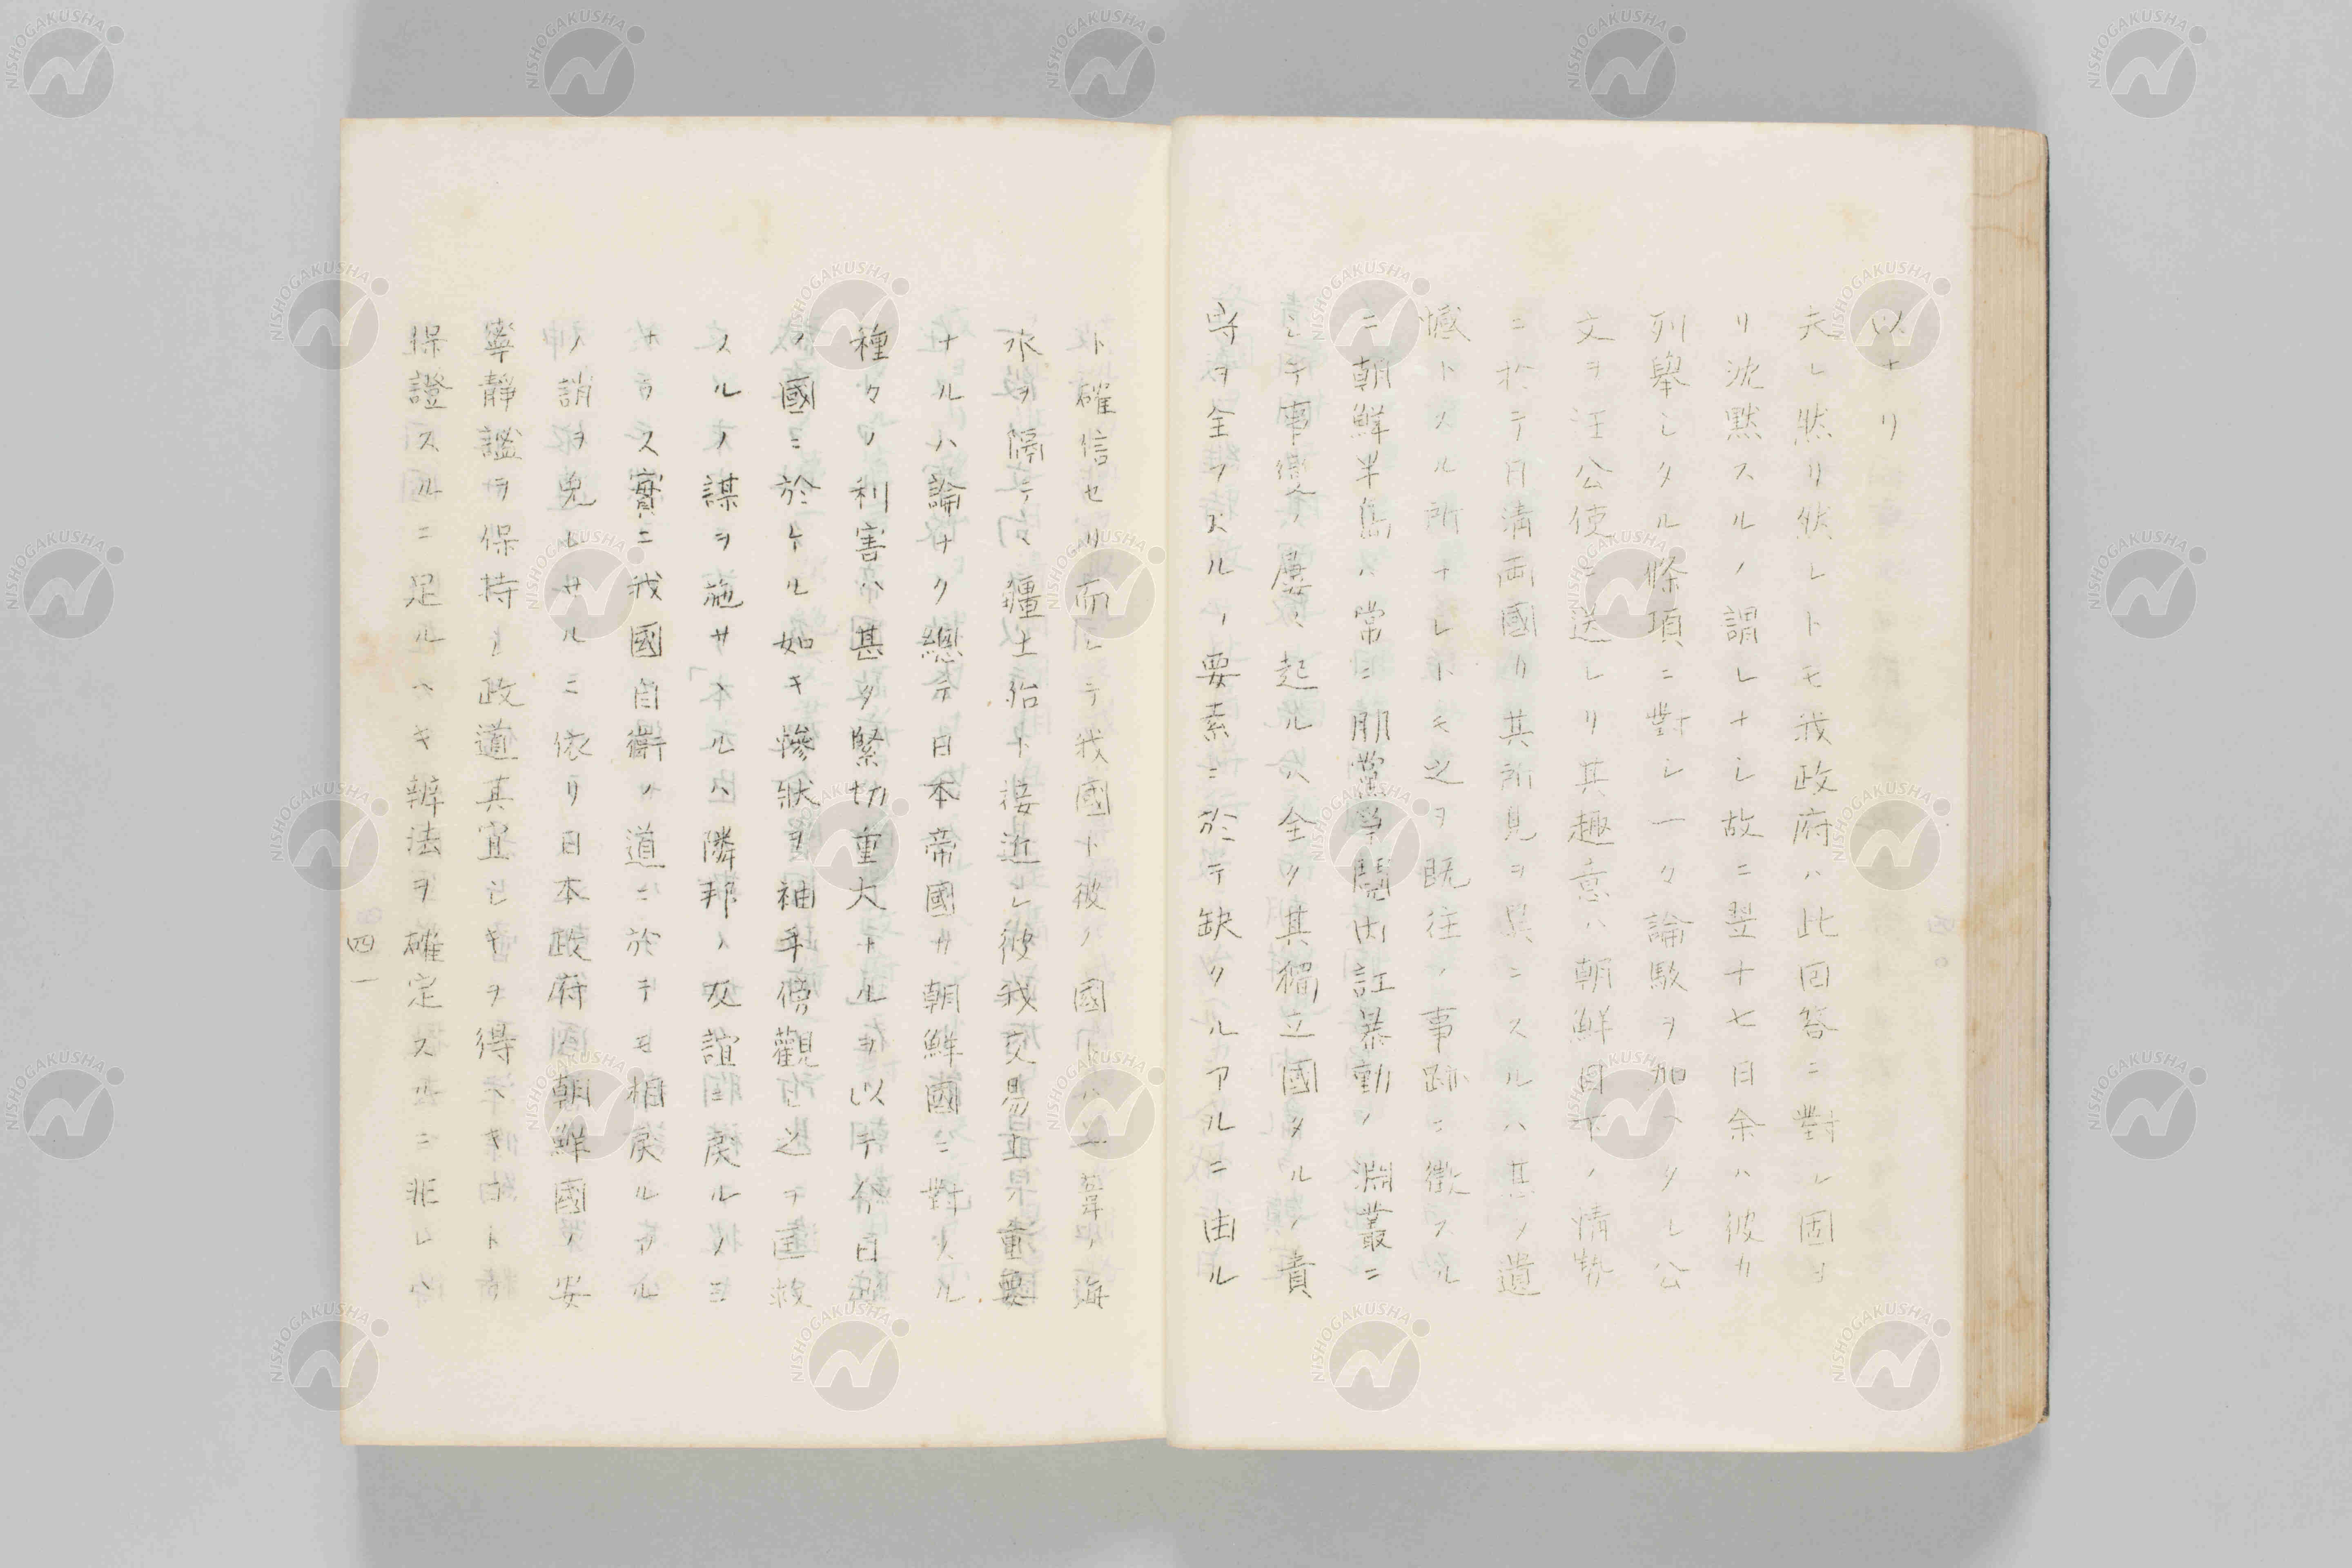 以ナリ
夫レ然リ然レトモ我政府ハ此回答ニ對シ固ヨ
リ沈黙スルノ謂レナシ故ニ翌十七日余ハ彼カ
列舉シタル條項ニ對シ一々論駁ヲ加ヘタル公
文ヲ汪公使ニ送レリ其趣意ハ朝鮮目下ノ情勢
ニ於テ日清兩國カ其所見ヲ異ニスルハ甚タ遺
憾トスル所ナレトモ之ヲ既往ノ事跡ニ徴スル
ニ朝鮮半島ハ常ニ朋黨爭鬩内訌暴動ノ淵叢ニ
シテ事變ノ屢々起ルハ全ク其獨立國タルノ責
守ヲ全フスルノ要素ニ於テ缺クルアルニ由ル
ト確信セリ而シテ我國ト彼ノ國トハ一葦ノ海
水ヲ隔テ、疆土殆ト接近シ彼我交易上ノ重要
ナルハ論ナク總テ日本帝國カ朝鮮國ニ對スル
種々ノ利害ハ甚タ緊切重大ナルヲ以テ今日彼
ノ國ニ於ケル如キ慘狀ヲ袖手傍觀シ之ヲ匡救
スルノ謀ヲ施サヽルハ隣邦ノ友誼ニ戻ルノミ
ナラス實ニ我國自衞ノ道ニ於テモ相戻ルアル
ノ誚ヲ免レサルニ依リ日本政府ハ朝鮮國ノ安
寧靜謐ヲ保持シ政道其宜シキヲ得ヘキコトヲ
保證スルニ足ルヘキ辨法ヲ確定スルニ非レハ
四一
NISHOGAKUSHA